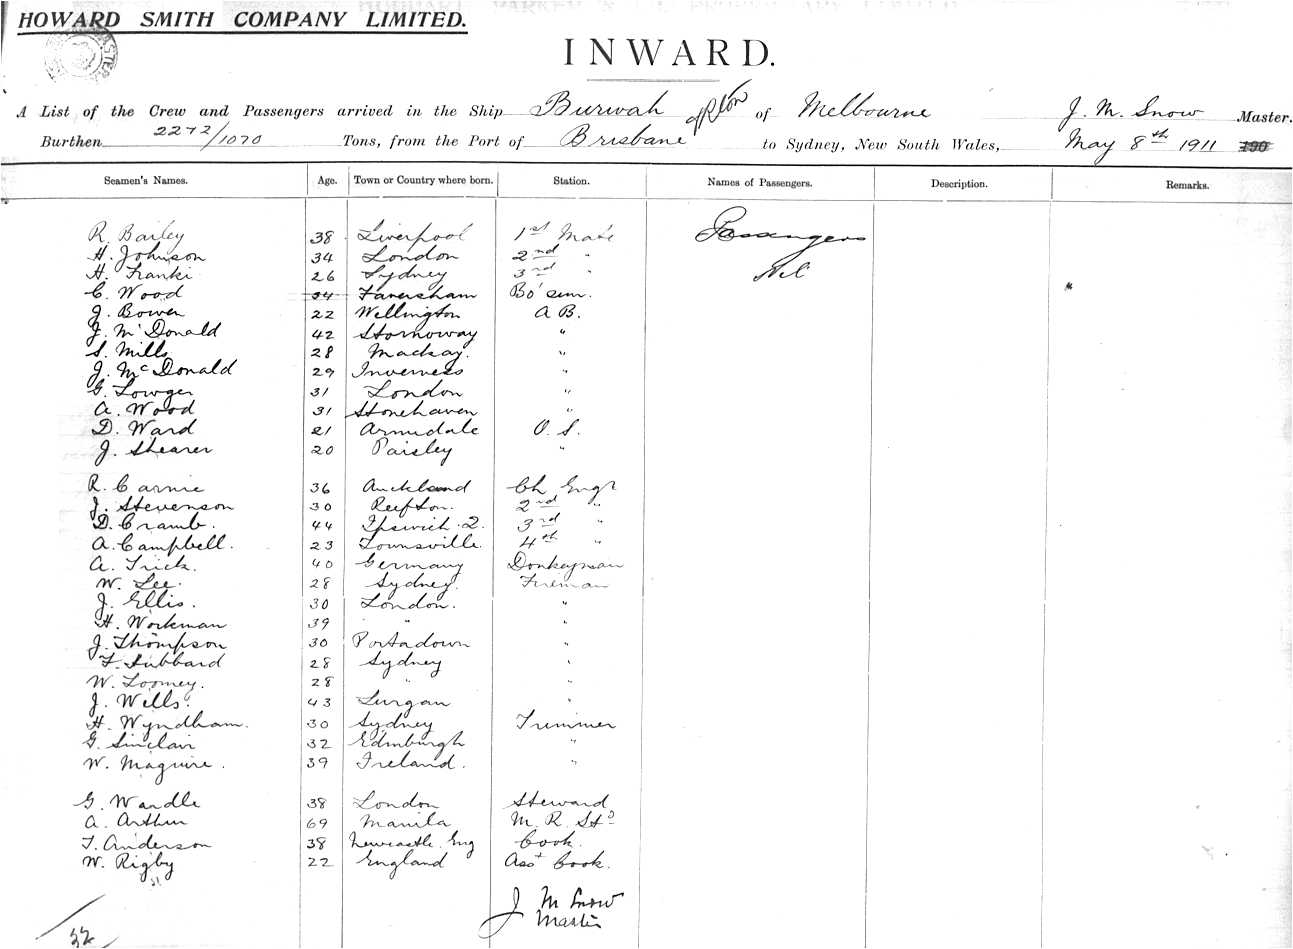 HOWARD SMITH COMPANY LIMITED.
INWARD.
A List of the Crew and Passengers arrived in the Ship Burwah of Melbourne J. M. Snow Master.
Burthen 2272/1070 Tons, from the Port of Brisbane to Sydney, New South Wales, May 8th 1911 190
Seamen's Names. Age. Town or Country where born. Station. Names of Passengers. Description. Remarks.
R. Bailey 38 Liverpool 1st Mate Passengers
H. Johnson 34 London 2nd "
H. Franki 26 Sydney 3rd " Nil
C. Wood 34 Faversham Bo'sun.
J. Bower 22 Wellington A B.
J. McDonald 42 Stornoway "
S. Mills 28 Mackay. "
J. McDonald 29 Inverness "
G. Lowger 31 London "
A. Wood 31 Stonehaven "
D. Ward 21 Armidale O. S.
J. Shearer 20 Paisley "
R. Carnie 36 Auckland Ch Engr
J. Stevenson 30 Reefton. 2nd "
D. Cramb. 44 Ipswich. Q. 3rd "
A. Campbell. 23 Townsville. 4th "
A. Trick. 40 Germany Donkeyman
W. Lee. 28 Sydney. Fireman
J. Ellis. 30 London. "
H. Workman 39 " "
J. Thompson 30 Portadown "
F. Hubbard 28 Sydney "
W. Toomey. 28 " "
J. Wells. 43 Lurgan "
H. Wyndham. 30 Sydney Trimmer
G. Sinclair 32 Edinburgh "
W. Maguire. 39 Ireland. "
G. Wardle 38 London Steward
A. Arthur 69 Manila M. R. Std
T. Anderson 38 Newcastle Eng Cook.
W. Rigby 22 England Asst Cook.
J M Snow
Master
32